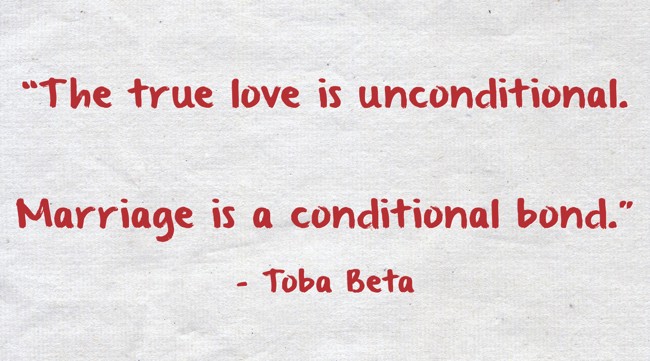 “The true love is unconditional.
Marriage is a conditional bond.”
- Toba Beta